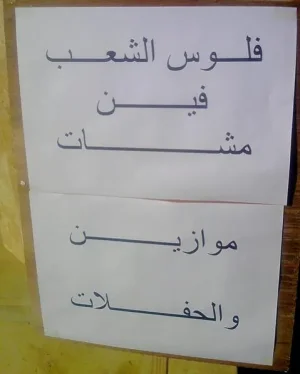 فلوس الشعب
فين
مشات
موازين
والحفلات